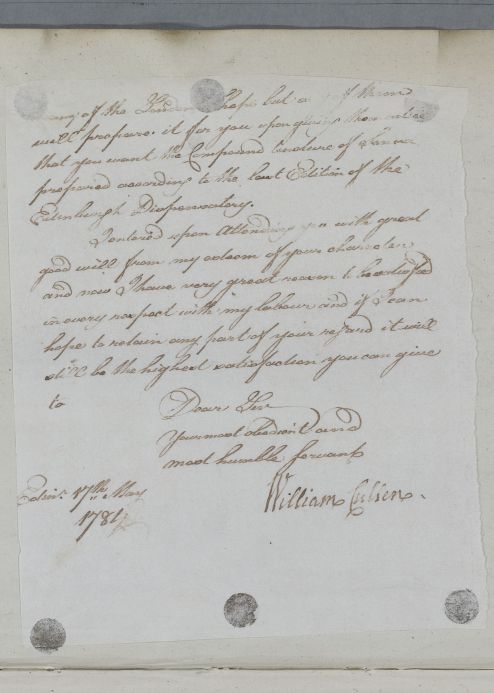 any of the London Shops but any of them
will prepare it for you upon giving them notice
that you want the Compound tincture of Senna
prepared according to the last Edition of the
Edinburgh Dispensatory.
I entered upon attending you with great
good will from my esteem of your character
and now I have very great reason to be satisfied
in every respect with my labour and if I can
hope to retain any part of your regard it will
still be the highest satisfaction you can give
to
Dear Sir
Your most obedient and
most humble Servant
William Cullen.
Edinr. 17th May
1781